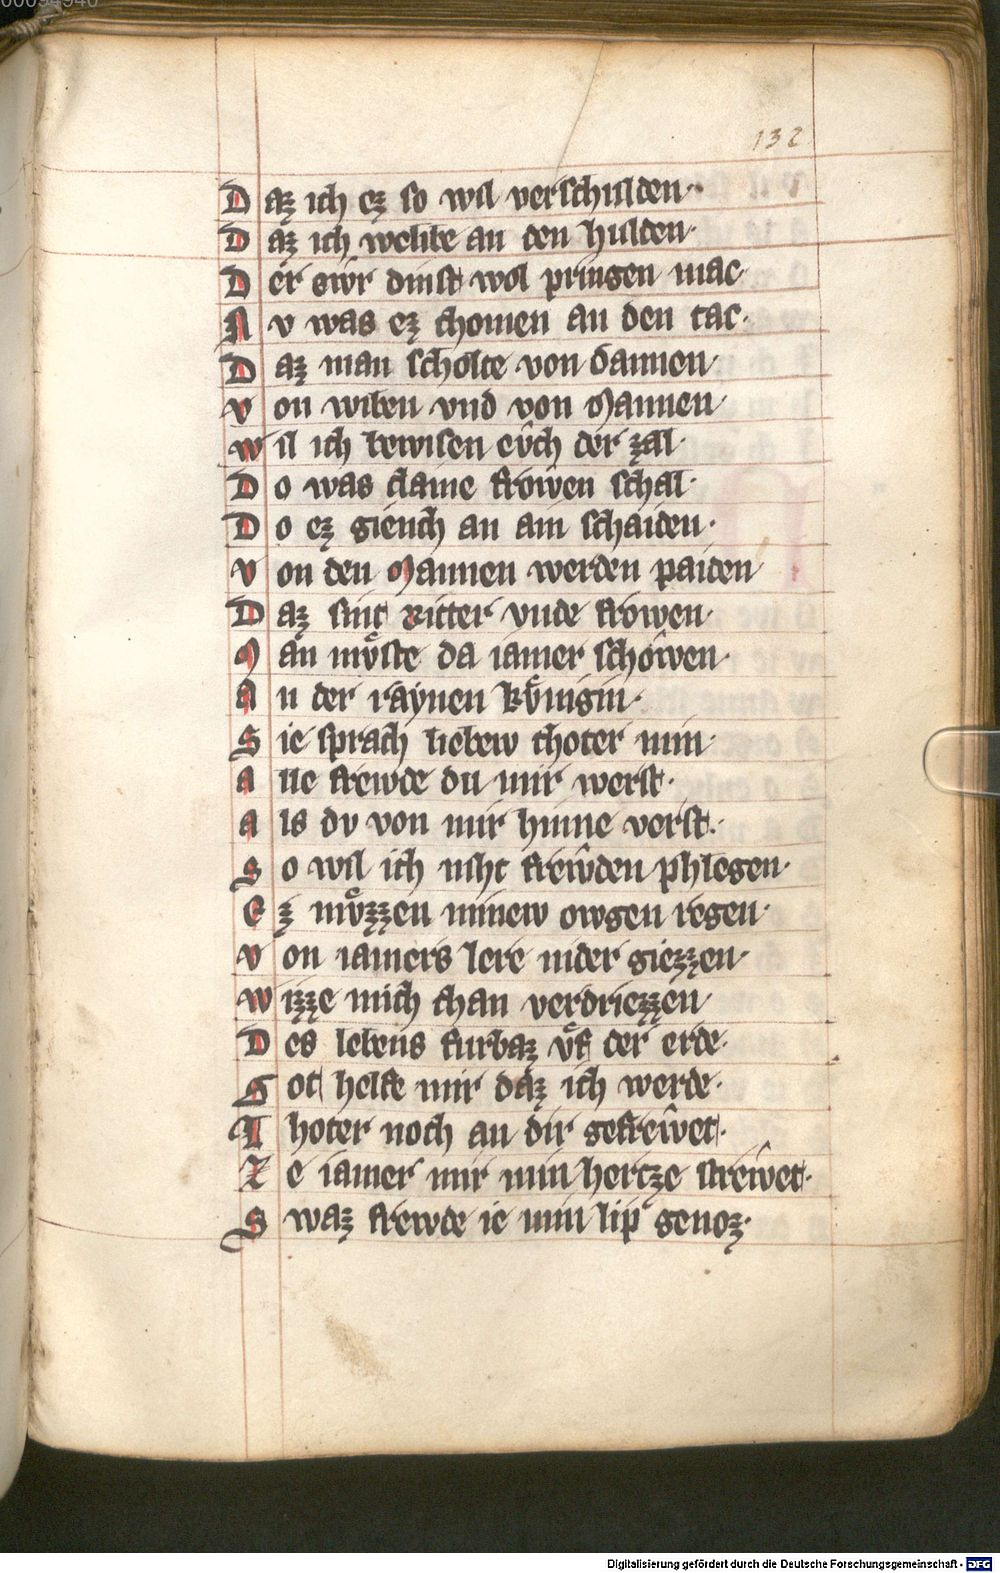 00094940
132
D az ich ez so wil verschulden·
D az ich welibe an den hulden·
D er ewr dinst wol pringen mac·
N v was ez chomen an den tac·
D az man scholte von dannen·
V on wiben vnd von Mannen·
W il ich bewisen evͮch der zal·
D o was claine frowen schal·
D o ez giench an ain schaiden·
V on den Mannen werden paiden
D az sint Ritter vnde frowen·
M an mvͤste da iamer schôwen·
A n der raynen kvͤnigin·
S ie sprach liebew thoter min·
A lle frewde du mir werst·
A ls dv von mir hinne verst·
S o wil ich niht frewͮden phlegen·
E z mvͤzzen minew owgen regen·
V on iamers lere nider giezzen·
W izze mich chan verdriezzen·
D es lebens furbaz vͤf der erde·
G ot helfe mir daz ich werde·
T hoter noch an dir gefrêwet·
Z e iamer mir min hertze strêwet·
S waz frewde ie min lip genoz·
Digitalisierung gefördert durch die Deutsche Forschungsgemeinschaft - DFG